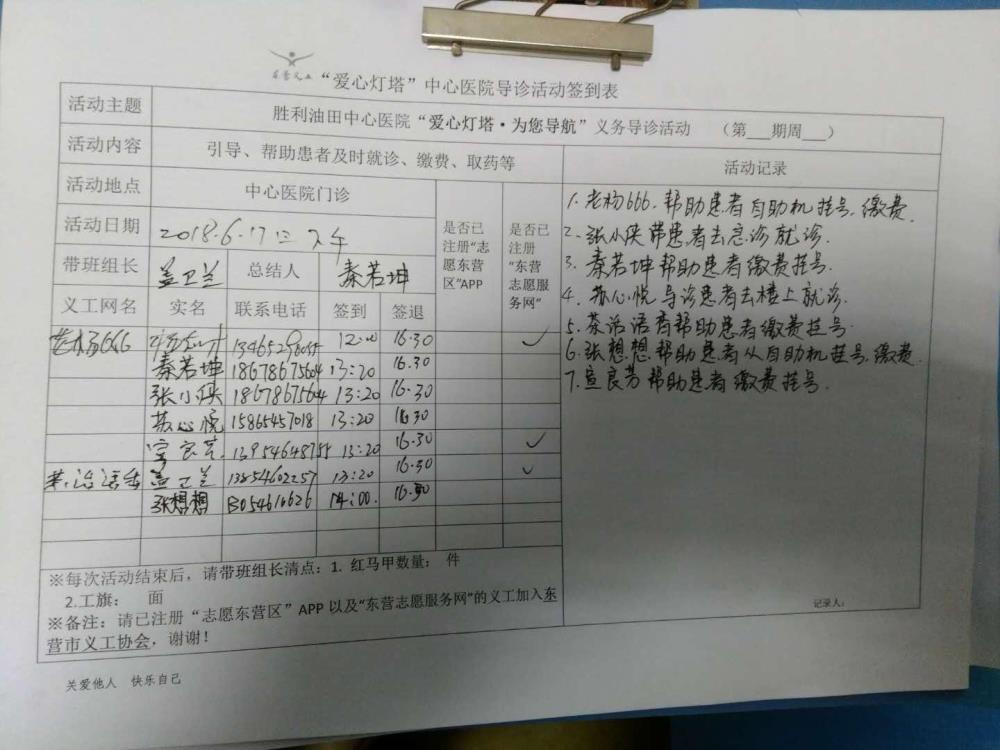 东营义工
“爱心灯塔”中心医院导诊活动签到表
活动主题 胜利油田中心医院“爱心灯塔·为您导航”义务导诊活动 （第___期周___）
活动内容 引导、帮助患者及时就诊、缴费、取药等 活动记录
活动地点 中心医院门诊 是否已注册“志愿东营区”APP 是否已注册“东营志愿服务网”
活动日期 2018.6.17 下午
带班组长 盖卫兰 总结人 秦若坤
义工网名 实名 联系电话 签到 签退
老杨666 12:00 16.30 ✓
秦若坤 18678675604 13:20 16.30
张小侠 18678675604 13:20 16.30
苏心悦 15865457018 13:20 16.30
宣良芳 13954648755 13:20 16.30 ✓
茶话语香 盖卫兰 13854602257 13:20 16.30 ✓
张想想 13054616626 14:00. 16.30
1. 老杨666.帮助患者自助机挂号.缴费.
2. 张小侠带患者去急诊就诊.
3. 秦若坤帮助患者缴费挂号.
4. 苏心悦导诊患者去楼上就诊.
5. 茶话语香帮助患者缴费挂号
6. 张想想帮助患者从自助机挂号.缴费.
7. 宣良芳帮助患者缴费挂号.
记录人：
※每次活动结束后，请带班组长清点：1. 红马甲数量： 件
2.工旗： 面
※备注：请已注册“志愿东营区”APP 以及“东营志愿服务网”的义工加入东
营市义工协会，谢谢！
关爱他人 快乐自己